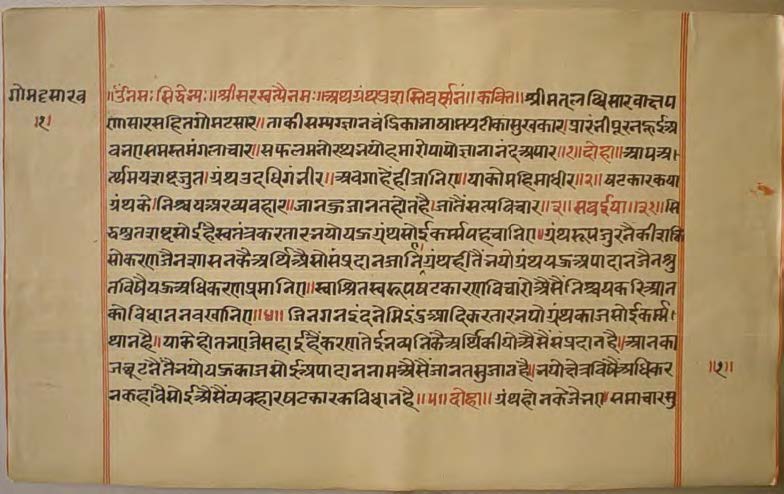 गोमटसार व
॥१॥
॥ॐनमः सिद्धेभ्यः॥श्रीसरस्वत्यैनमः॥अथग्रंथप्रशस्तिवर्णनं॥कवित्त॥श्रीमतलब्धिसारवाक्षप
णासारसहितगोमटसार॥ताकीसम्यग्ज्ञानचंद्रिकाभाषामयटीकासुखकार॥प्रारंभीपूरनहूईअ
बभएसमस्तमंगलाचार॥सफलमनोरथभयोहमारोपायोज्ञानानंदअपार॥१॥दोहा॥आपअ
र्त्थमयशब्दजुत।ग्रंथउदधिगंभीर॥अवगाहैंहीजानिए॥याकीमहिमाधीर॥२॥षटकारकया
ग्रंथके।निश्चयअरव्यवहार॥जानहुजानतहोतहै।जातैंसत्यविचार॥३॥सवईया॥३१॥सि
द्धश्रुतशब्दसोईहैस्वतंत्रकरतारभयोयहग्रंथसोईकर्म्मपहचानिए॥ग्रंथरूपजुरनैकीशक्ति
सोकरणजैनशासनकैअर्थिअैसोसंप्रदानजानि ग्रंथहीतैंभयोग्रंथयहअपादानजैनश्रु
तविषैयहअधिकरणप्रमानिए॥स्वाश्रितस्वरूपषटकारणविचारोअैसैंनिश्चयकरिआन
कोविधाननबखानिए॥४॥ जिनगनइंदनेमिइंद्रआदिकरतारभयोग्रंथकाजसोईकर्म्म
थानहै॥याकेहोतभएजेसहाईहैंकरणतेईभव्यनिकैअर्थिकीयोअैसैंसंप्रदानहै॥आनका
जछूटनैतैंभयोयहकाजसोईअपादाननामअैसैंजानतसुजानहै॥भयोक्षेत्रविषैंअधिकर
नकहावैसोईअैसैंव्यवहारषटकारकविधानहै॥५॥दोहा॥ ग्रंथहोनकेजेभए॥समाचारसु
॥१॥